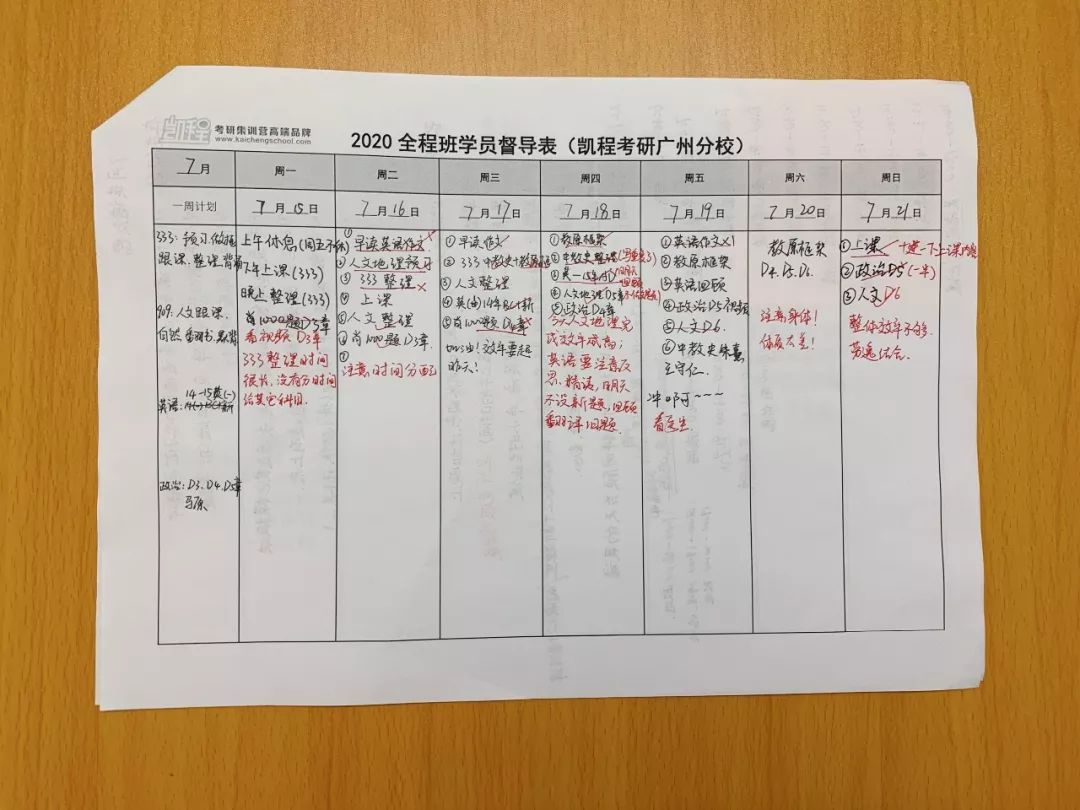 凯程
考研集训营高端品牌
www.kaichengschool.com
2020 全程班学员督导表（凯程考研广州分校）
7月
周一
周二
周三
周四
周五
周六
周日
一周计划
7月15日
7月16日
7月17日
7月18日
7月19日
7月20日
7月21日
333: 预习.做框
跟课.整理.背诵
909.人文跟课.
自然
英语: 14-15英(一)
政治: D3.D4.D5章
马原
上午休息(周五不休)
下午上课(333)
晚上整理(333)
肖1000题D3章
看视频 D3章
333整理时间
很长,没有分时间
给其它科目.
① 早读英语作文
② 人文地理预习
③ 333整理 ×
④ 上课
⑤ 人文整理
⑥ 肖1000题D3章.
⑦
注意时间分配
① 早读作文
② 333中教史+教原
③ 人文整理
⑤ 肖1000题 D4章×
加油! 效率要超
昨天!
① 教原框架
② 中教史整理
④ 人文地理D5章
⑤ 政治D4章
今天人文地理完
成效率 高;
英语要注意反
思.精读,明天
不设新题,回顾
翻译旧题.
① 英语作文×1
② 教原框架
③ 英语回顾
④ 政治D5视频
⑤ 人文D6.
⑥ 中教史朱熹
王守仁.
冲啊~~~
看医生.
教原框架
D4.D5.D6.
注意身体!
体质太差!
① 上课
② 政治D5(一半)
③ 人文D6
整体效率不够.
劳逸结合.